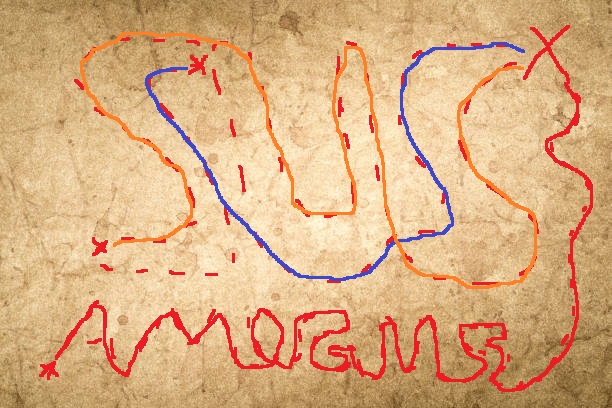 SUS
AMOGUS